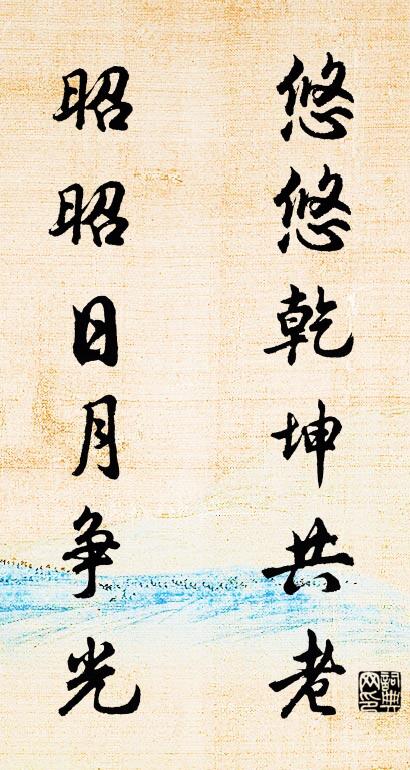 悠悠乾坤共老
昭昭日月争光
詞典网印